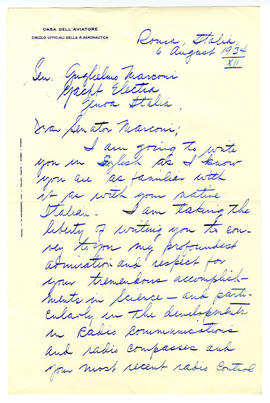 CASA DELL'AVIATORE
CIRCOLO UFFICIALI DELLA R. AERONAUTICA
Roma, Italia
6 August 1934
XII
Sen. Guglielmo Marconi
Yacht Electra,
Genoa Italia.
Dear Senator Marconi;
I am going to write
you in English as I know
you are as familiar with
it as with your native
Italian. I am taking the
liberty of writing you to con-
vey to you my profoundest
admiration and respect for
your tremendous accomplish-
ments in Science - and parti-
cularly in the developments
in Radio Communications
and radio compasses and
your most recent radio control